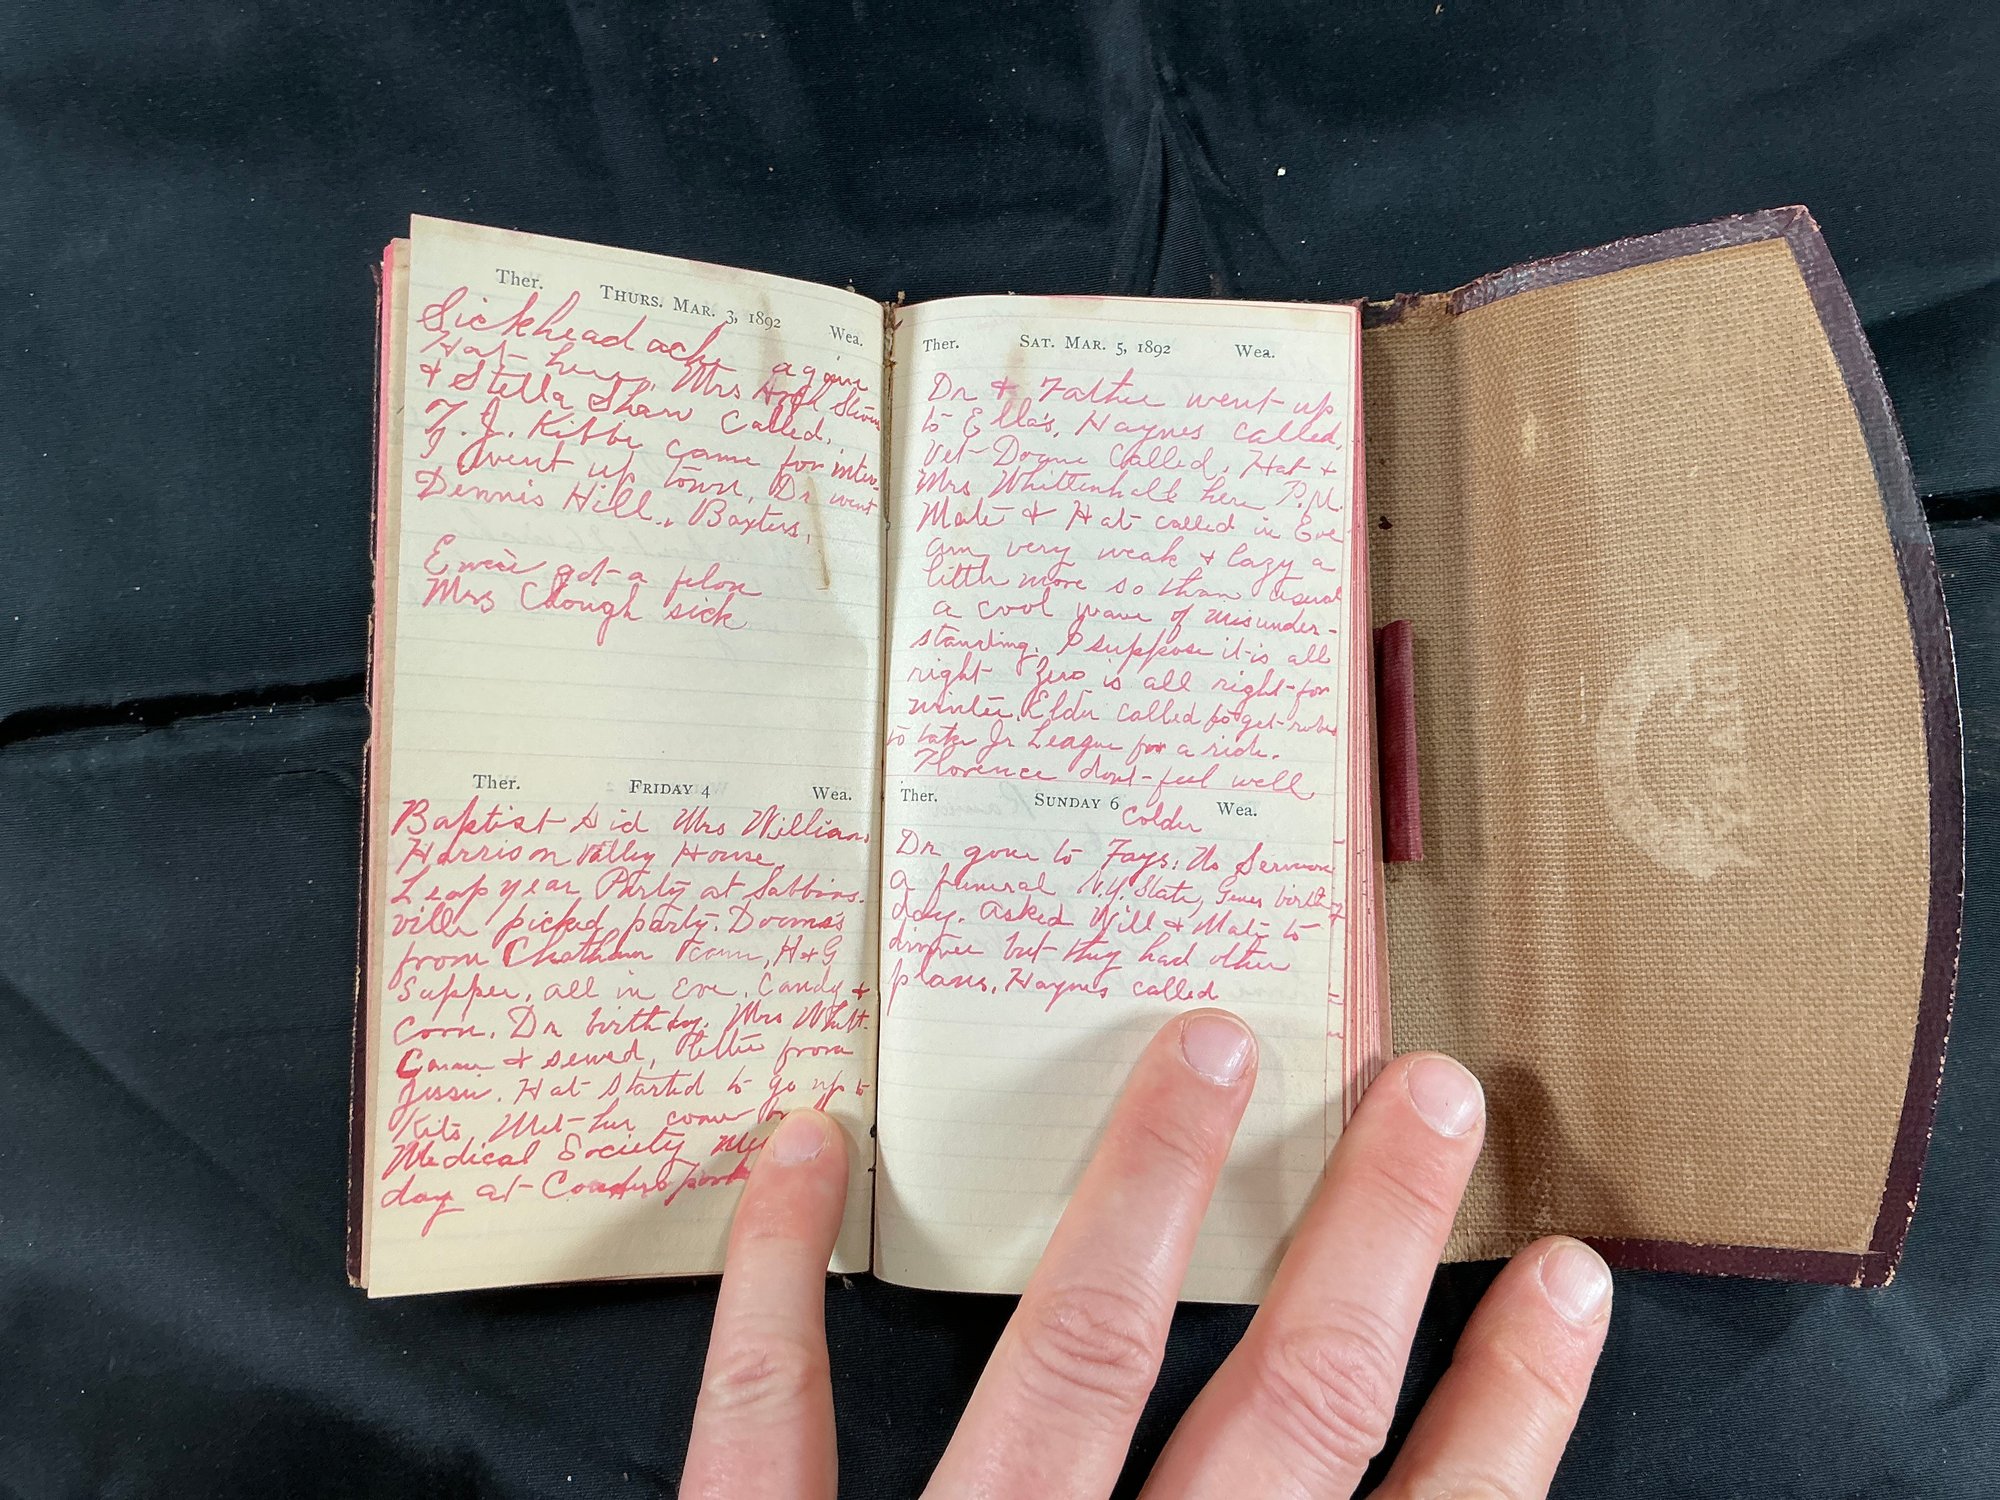 Ther. THURS. MAR. 3, 1892 Wea.
Sickheadache again
Hat here. Mrs
& Stella Shaw called.
F. J. Kibbe came for inter-
I went up town, Dr went
Dennis Hill, Baxters,
got a felon
Mrs Clough sick
Ther. FRIDAY 4 Wea.
Baptist Aid Mrs Williams
Harrison Valley House.
Leap year Party at Sabbins-
ville picked party.
from Chatham came, H & G
Supper, all in Eve. Candy &
Corn. Dr birthday. Mrs Whitt-
came & sewed, letter from
Jessie. Hat started to go up to
Kits Met her
Medical Society
day at
Ther. SAT. MAR. 5, 1892 Wea.
Dr & Father went up
to Ella's, Haynes called,
Vet Doane called, Hat &
Mrs Whittenhall here P.M.
Mate & Hat called in Eve
am very weak & lazy a
little more so than usual
a cool wave of misunder-
standing. I suppose it is all
right Zero is all right for
winter. Elder called to get robes
to take Jr League for a ride.
Florence dont feel well
Ther. SUNDAY 6 Wea.
Colder
Dr gone to Fays. No Sermon
a funeral N.Y. State, birth
day. Asked Will & Mate to
dinner but they had other
plans. Haynes called